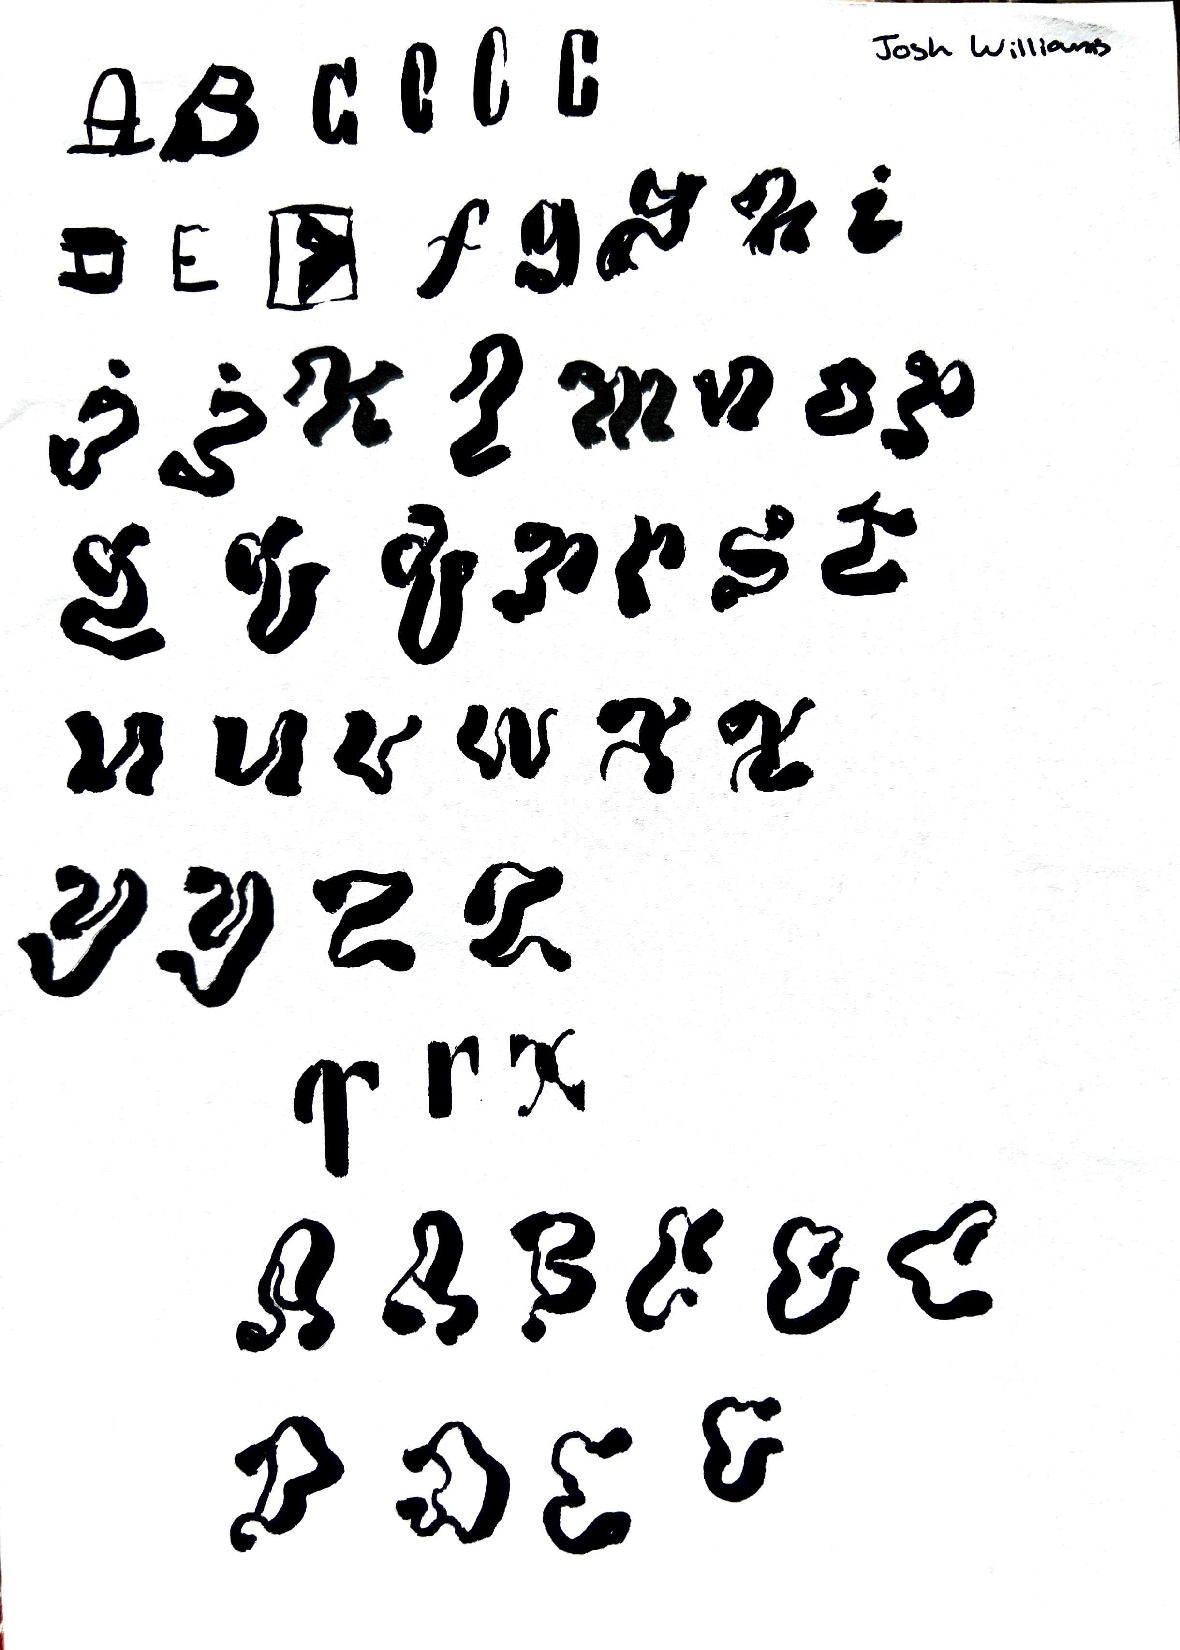 Josh Williams
A B C C C C
D E F f g y h i
j j k l m n o p
g q q p r s t
u u v w x x
y y z z
r r x
A A B C C C
D D E E